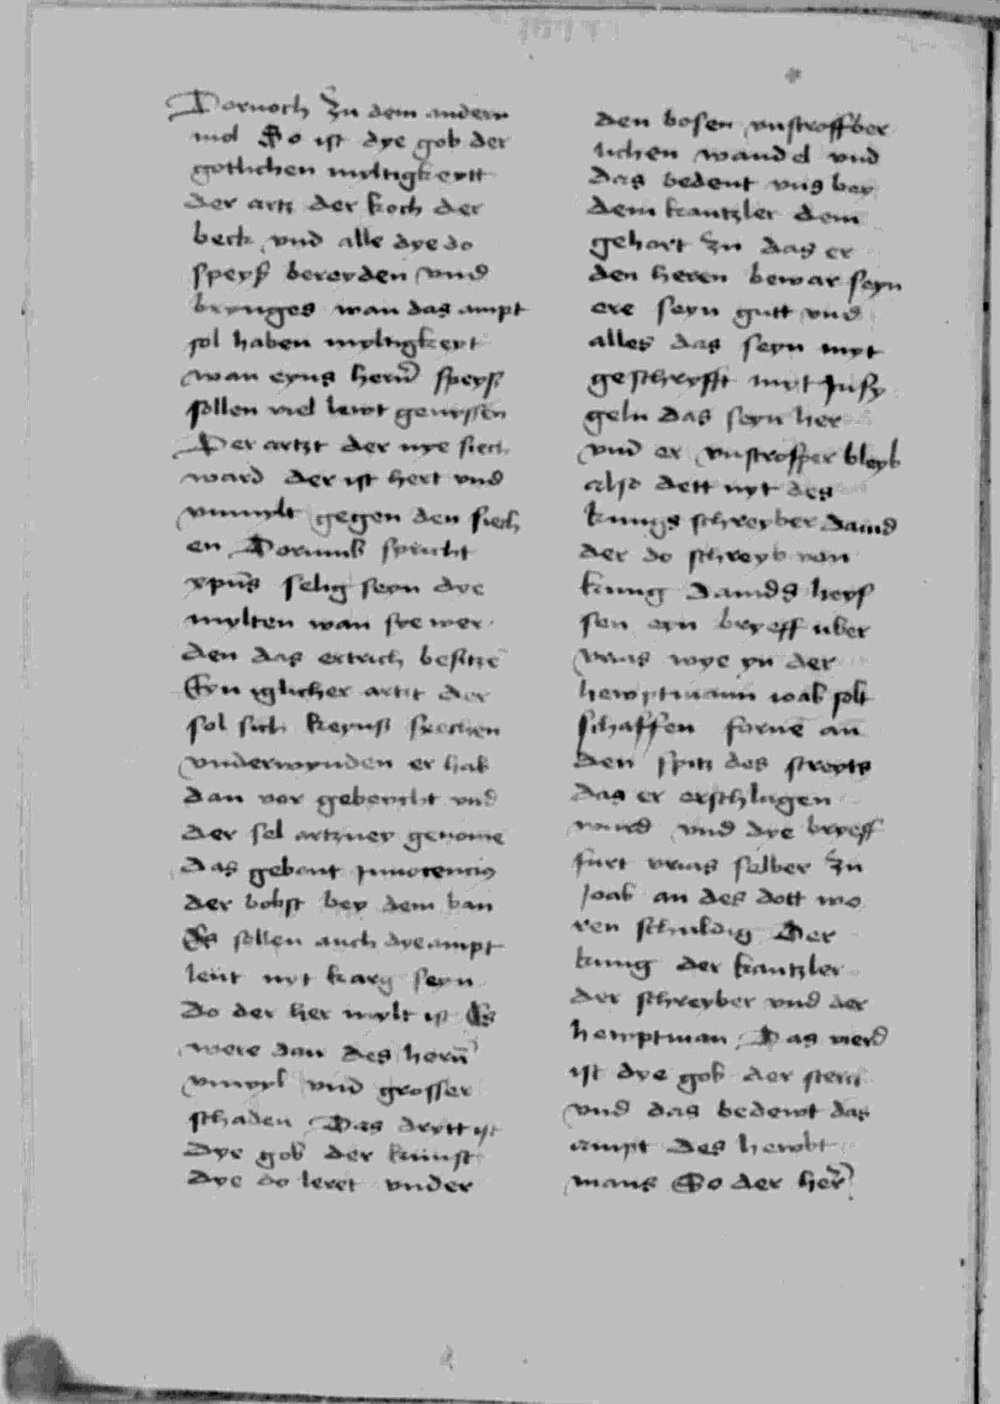 Dornoch Zu dem andern
mol So ist dye gob der
gotlichen myltigkeytt
der artz der koch der
beck vnd alle dye do
speyß bereyden vnd
brynges wan das ampt
sol haben myltigkeyt
wan eyns hern̄ speyß
sollen viel lewt genyssen
Der artzt der nye siech
ward der ist hert vnd
vnmylt gegen den siech
en Dorumb spricht
xpūs selig seyn dye
mylten wan sye wer
den das ertrich besitzē
Eyn iglicher artzt der
sol sich keynß siechen
vnderwynden er hab
dan vor gebeycht vnd
der sel artzney genome
das gebout Jnnocencius
der bobst bey dem ban
Es sollen auch dye ampt
leüt nyt karg seyn
do der her mylt ist Es
were dan des hern̄
vnd grosser
schaden Das drytt ist
dye gob der kunst
dye do leret vnder
den bosen vnstroffber
lichen wandel vnd
das bedeut vns bey
dem kantzler dem
gehort zu das er
den heren bewar seyn
ere seyn gutt vnd
alles das seyn myt
geschryfft myt Jnsy
geln das seyn her
vnd er vnstroffper bleyb
also dett nyt des
kungs schreyber dauid
der do schreyb von
kung Dauids heyß
sen eyn bryeff uber
vrias wye yn der
hewptmann ioab solt
schaffen forne an
den spitz des streyts
das er erschlagen
wurd vnd dye bryeff
furt vrias selber zu
Joab an des dott wo
ren schuldig Der
kung der kantzler
der schreyber vnd der
hewptman Das vierd
ist dye gob der sterck
vnd das bedewt das
ampt des hewbt
mans So der her̄